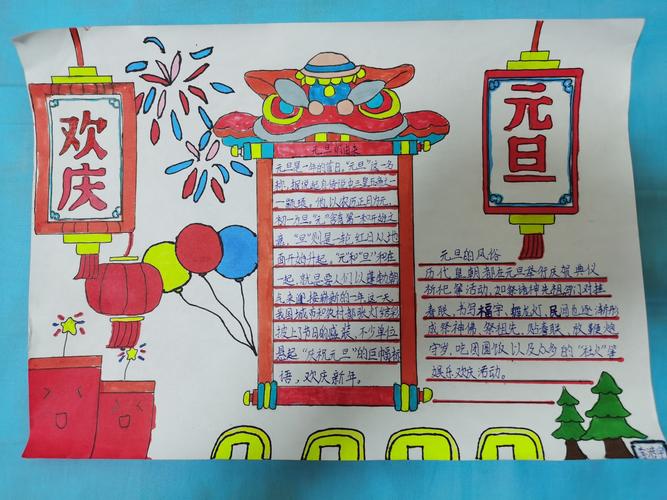 欢庆
元旦
元旦的由来
元旦是一年的首日,"元旦"这一名
称,据说起自传说中三皇五帝之一
一颛顼,他以农历正月为元,
初一为旦。"元"含有第一和开始之
意,"旦"则是一轮红日从地
面开始升起,"元"和"旦"和在
一起,就是要人们以蓬勃朝
气来迎接崭新的一年这一天,
我国城市和农村都张灯结彩
披上节日的盛装,不少单位
悬起"庆祝元旦"的巨幅标
语,欢庆新年。
元旦的风俗
历代皇朝都在元旦举行庆贺典仪
祈祀等活动,如祭诸神先祖,门对挂
春联,书写福字、舞龙灯,民间也逐渐形
成祭神佛、祭祖先、贴春联、放鞭炮
守岁、吃团圆饭以及众多的"社火"等
娱乐欢庆活动。